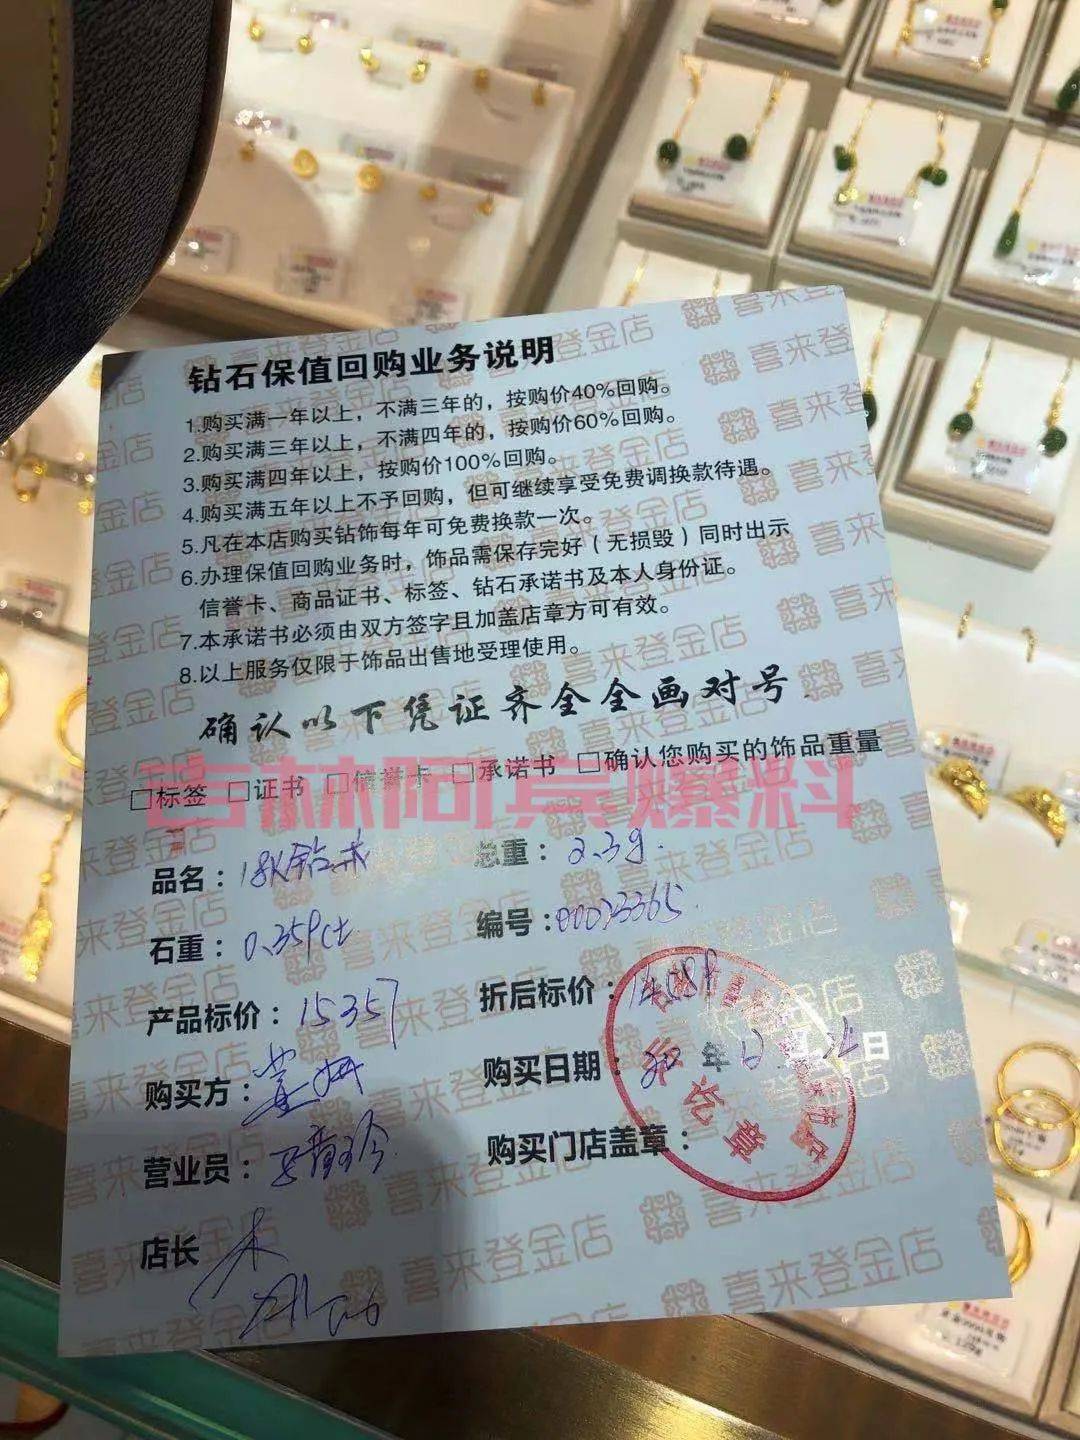 钻石保值回购业务说明
1.购买满一年以上，不满三年的，按购价40%回购。
2.购买满三年以上，不满四年的，按购价60%回购。
3.购买满四年以上，按购价100%回购。
4.购买满五年以上不予回购，但可继续享受免费调换款待遇。
5.凡在本店购买钻饰每年可免费换款一次。
6.办理保值回购业务时，饰品需保存完好（无损毁）同时出示
信誉卡、商品证书、标签、钻石承诺书及本人身份证。
7.本承诺书必须由双方签字且加盖店章方可有效。
8.以上服务仅限于饰品出售地受理使用。
确认以下凭证齐全全画对号
□标签 □证书 □信誉卡 □承诺书 □确认您购买的饰品重量
吉林阿宾爆料
品名：18K钻戒 总重：2.3g.
石重：0.359ct 编号：00033365
产品标价：15357 折后标价：
购买方： 购买日期： 年 日
营业员： 购买门店盖章：
店长
喜来登金店